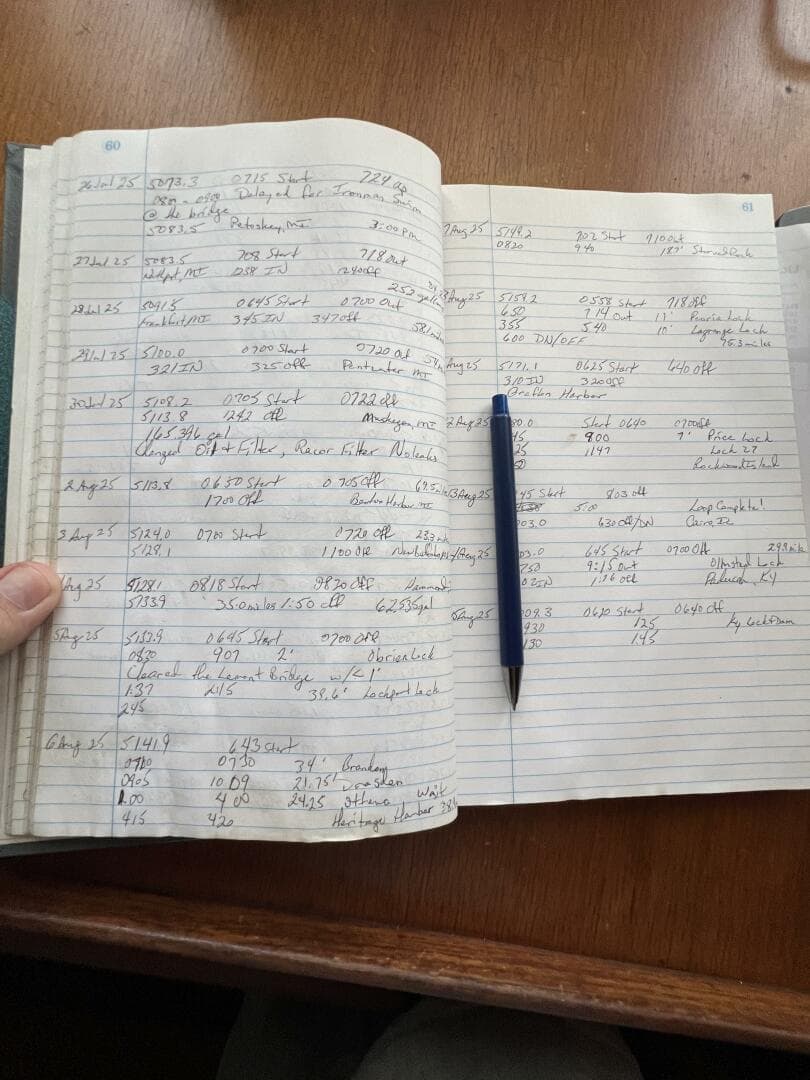 60
26 Jul 25 5073.3 0715 Start 724
0900 Delayed for Ironman Swim
@ the bridge
5083.5 Petoskey, MI 3:00 pm
27 Jul 25 5083.5 708 Start 718 out
MI 1238 IN 1240 off
252
28 Jul 25 5091.5 0645 Start 0700 Out
Frankfort, MI 345 IN 347 off
29 Jul 25 5100.0 0700 Start 0720 out
321 IN 325 off Pentwater MI
30 Jul 25 5108.2 0705 Start 0722 off
5113.8 1242 off Muskegon, MI
165.396 gal
Changed Oil + Filter, Racor Filter No leaks
2 Aug 25 5113.8 0630 Start 0705 off
1700 off Benton Harbor MI
3 Aug 25 5124.0 0700 Start 0720 off
5128.1 1100 off
Aug 25 5128.1 0818 Start Hammond
5133.9 35.0 miles 1:50 off 62.535 gal
5 Aug 25 5133.9 0645 Start 0700 off
0830 907 2' Obrien Lock
Cleared the Lemont Bridge w/<1'
1:37 215 39.6' Lockport Lock
245
6 Aug 25 5141.9 643 Start
0730 34'
0905 10 09 21.75'
4 00 24.25 Wait
415 420 Heritage Harbor
61
7 Aug 25 5149.2 702 Start 710 out
0820 940 Starved Rock
Aug 25 5159.2 0558 Start 718 off
650 714 out 11' Peoria Lock
355 540 10' Lagrange Lock
600 DN/OFF 75.3 miles
Aug 25 5171.1 0625 Start 640 off
310 IN 320 off
Grafton Harbor
2 Aug 25 80.0 Start 0640 0700 off
45 900 7' Price Lock
25 1147 Lock 27
3 Aug 25 45 Start 803 off
5:00 Loop Complete!
03.0 630 off/DN Cairo, IL
Aug 25 03.0 645 Start 0700 off
750 9:15 out Olmsted Lock
IN 1:16 off Paducah, KY
Aug 25 09.3 0620 Start 0640 off
930 125 Ky Lock + Dam
130 145